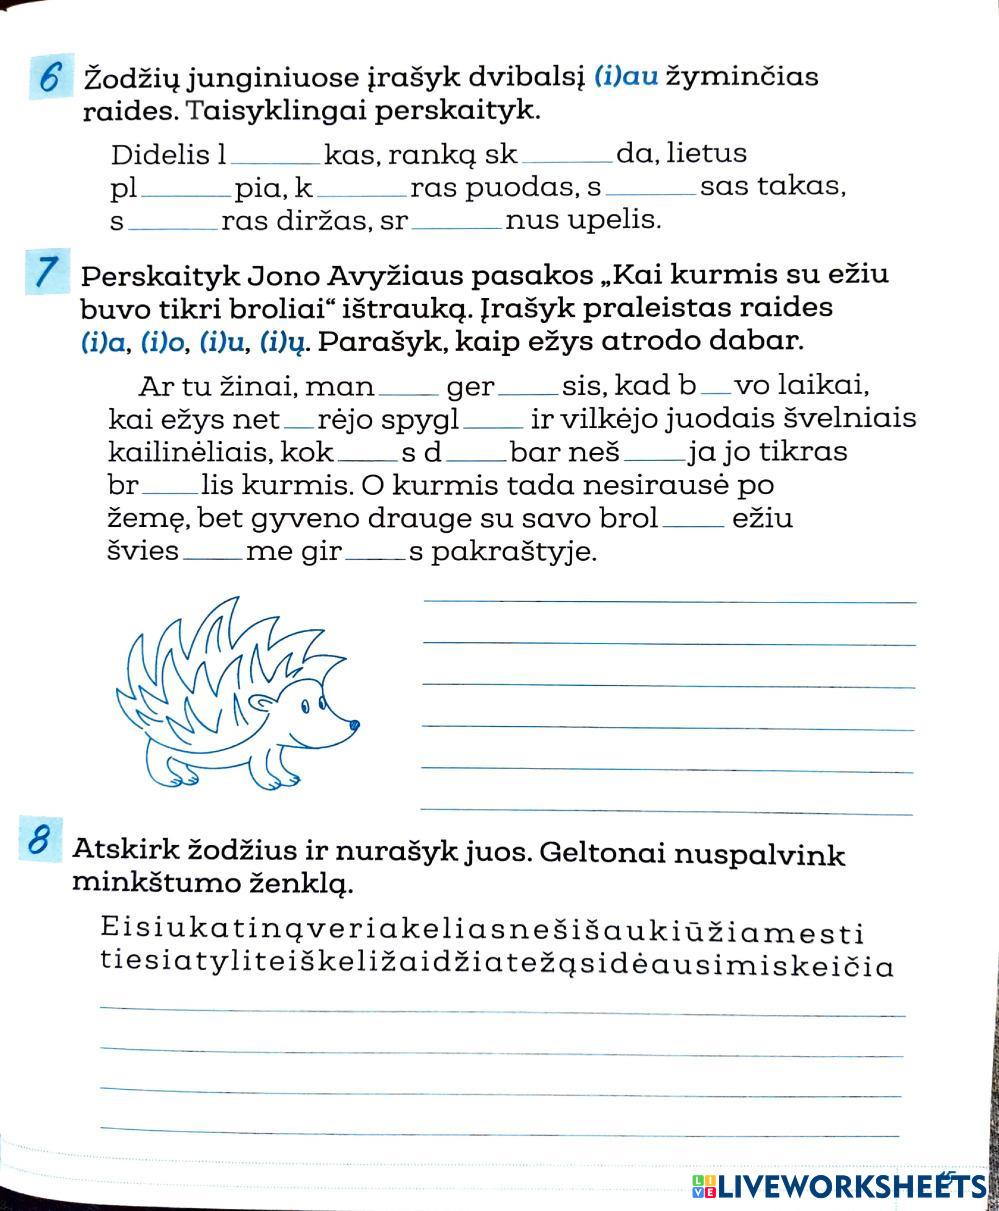 6 Žodžių junginiuose įrašyk dvibalsį (i)au žyminčias
raides. Taisyklingai perskaityk.
Didelis l______kas, ranką sk______da, lietus
pl______pia, k______ras puodas, s______sas takas,
s______ras diržas, sr______nus upelis.
7 Perskaityk Jono Avyžiaus pasakos „Kai kurmis su ežiu
buvo tikri broliai“ ištrauką. Įrašyk praleistas raides
(i)a, (i)o, (i)u, (i)ų. Parašyk, kaip ežys atrodo dabar.
Ar tu žinai, man____ ger____sis, kad b__vo laikai,
kai ežys net__rėjo spygl____ ir vilkėjo juodais švelniais
kailinėliais, kok____s d____bar neš____ja jo tikras
br____lis kurmis. O kurmis tada nesirausė po
žemę, bet gyveno drauge su savo brol____ ežiu
švies____me gir____s pakraštyje.
8 Atskirk žodžius ir nurašyk juos. Geltonai nuspalvink
minkštumo ženklą.
Eisiukatinąveriakeliasnešišaukiūžiamesti
tiesiatyliteiškeližaidžiatežąsidėausimiskeičia
LIVEWORKSHEETS